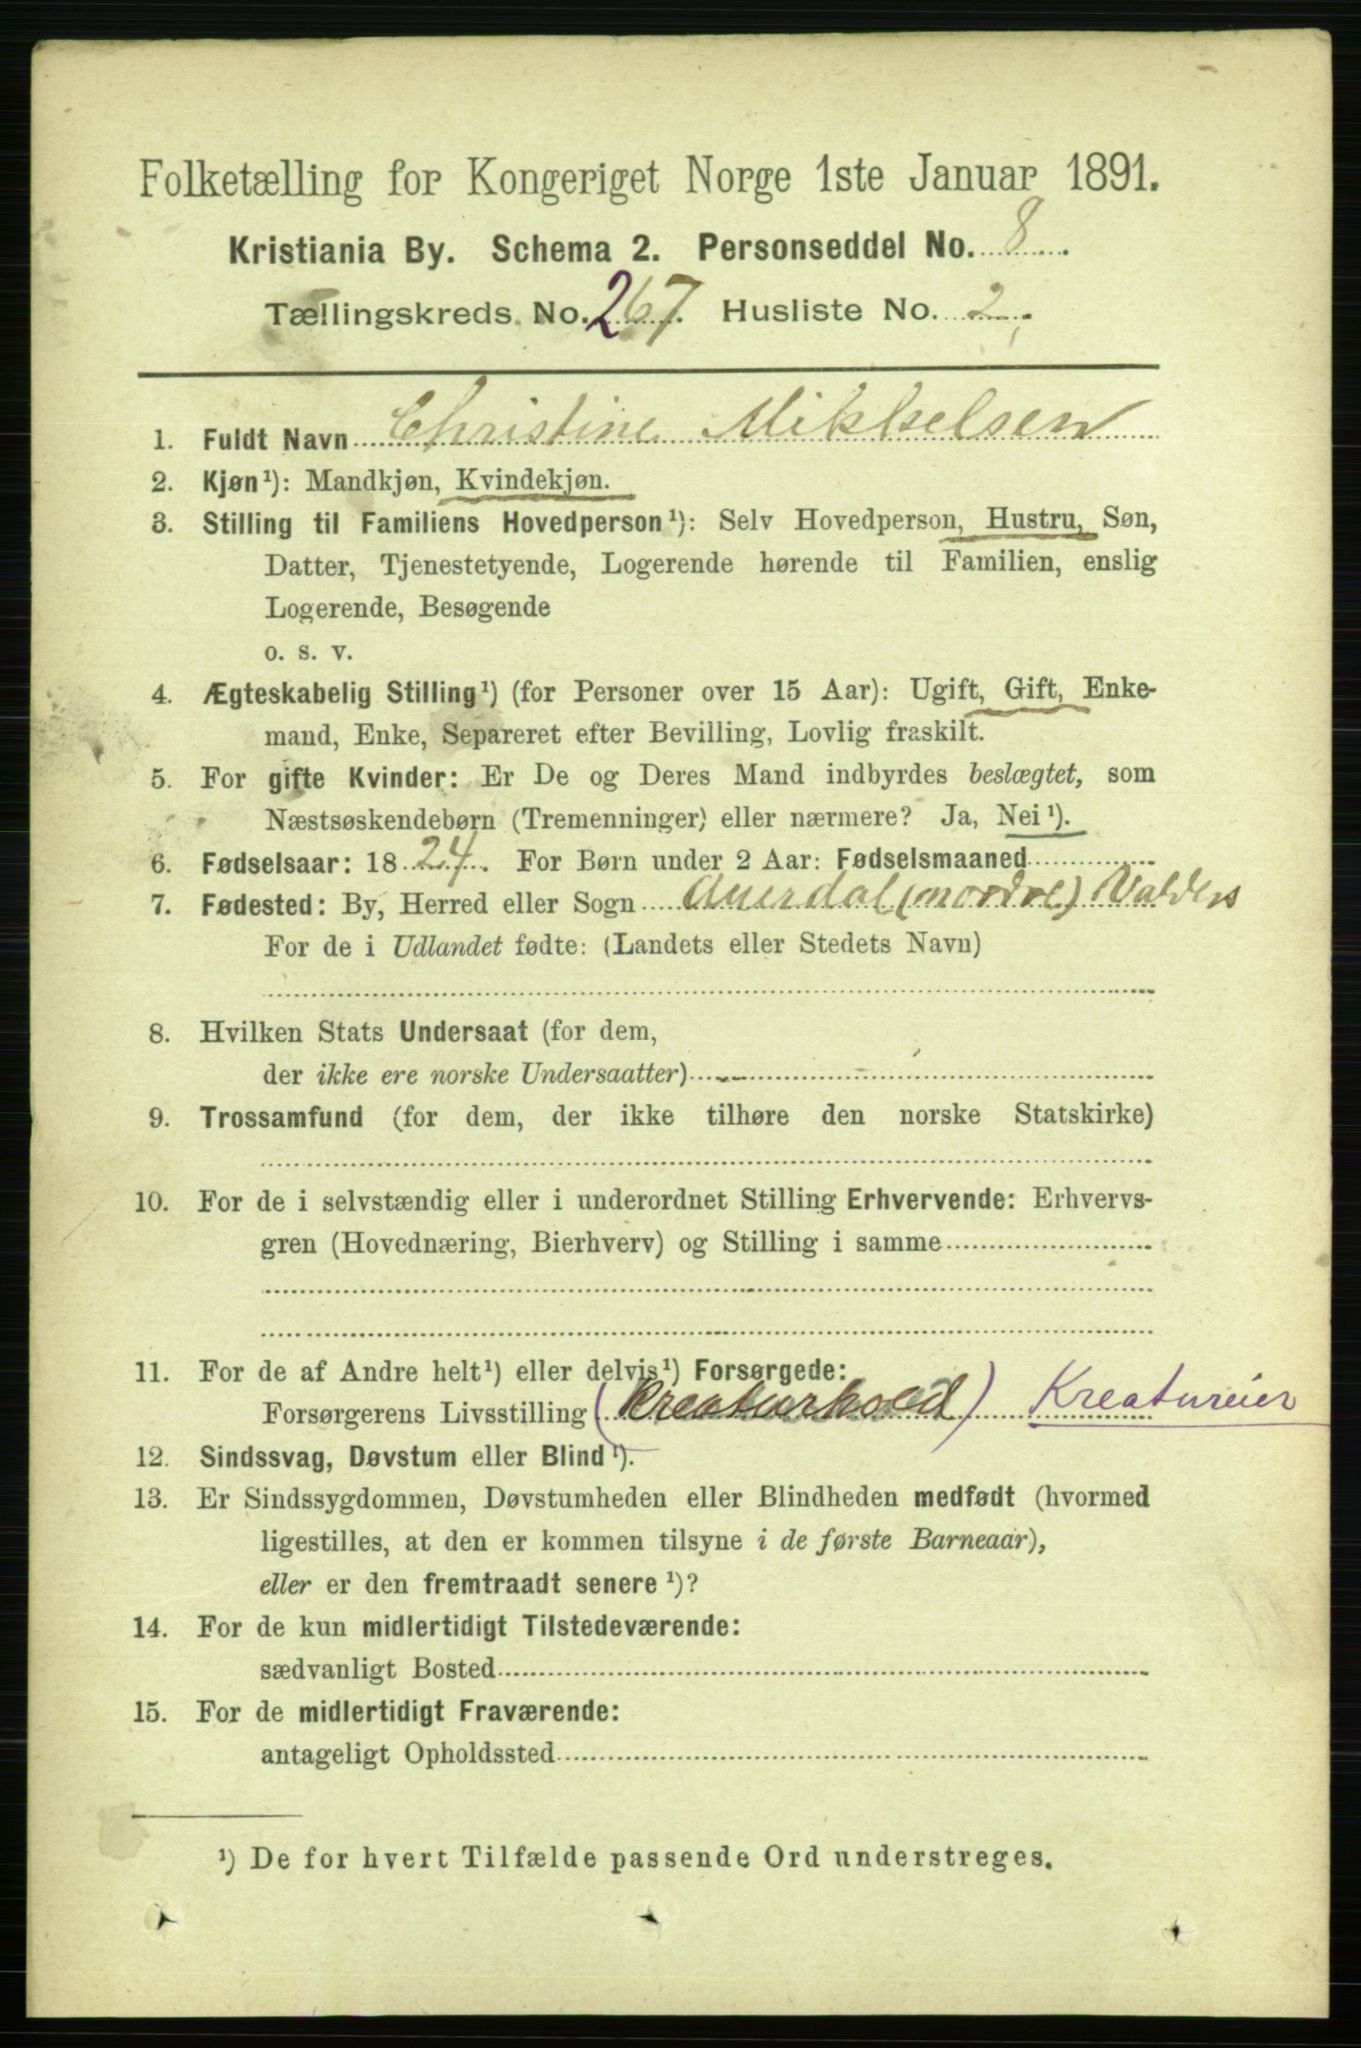 Folketælling for Kongeriget Norge 1ste Januar 1891.
Kristiania By. Schema 2. Personseddel No. 8.
Tællingskreds No. 267. Husliste No. 2.
1. Fuldt Navn Christine Mikkelsen
2. Kjøn¹): Mandkjøn, Kvindekjøn.
3. Stilling til Familiens Hovedperson¹): Selv Hovedperson, Hustru, Søn,
Datter, Tjenestetyende, Logerende hørende til Familien, enslig
Logerende, Besøgende
o. s. v.
4. Ægteskabelig Stilling¹) (for Personer over 15 Aar): Ugift, Gift, Enke-
mand, Enke, Separeret efter Bevilling, Lovlig fraskilt.
5. For gifte Kvinder: Er De og Deres Mand indbyrdes beslægtet, som
Næstsøskendebørn (Tremenninger) eller nærmere? Ja, Nei¹).
6. Fødselsaar: 1824. For Børn under 2 Aar: Fødselsmaaned
7. Fødested: By, Herred eller Sogn Auerdal (nordre) Valders
For de i Udlandet fødte: (Landets eller Stedets Navn)
8. Hvilken Stats Undersaat (for dem,
der ikke ere norske Undersaatter)
9. Trossamfund (for dem, der ikke tilhøre den norske Statskirke)
10. For de i selvstændig eller i underordnet Stilling Erhvervende: Erhvervs-
gren (Hovednæring, Bierhverv) og Stilling i samme
11. For de af Andre helt¹) eller delvis¹) Forsørgede:
Forsørgerens Livsstilling (Kreaturhold) Kreatureier
12. Sindssvag, Døvstum eller Blind¹).
13. Er Sindssygdommen, Døvstumheden eller Blindheden medfødt (hvormed
ligestilles, at den er kommen tilsyne i de første Barneaar),
eller er den fremtraadt senere¹)?
14. For de kun midlertidigt Tilstedeværende:
sædvanligt Bosted
15. For de midlertidigt Fraværende:
antageligt Opholdssted
¹) De for hvert Tilfælde passende Ord understreges.